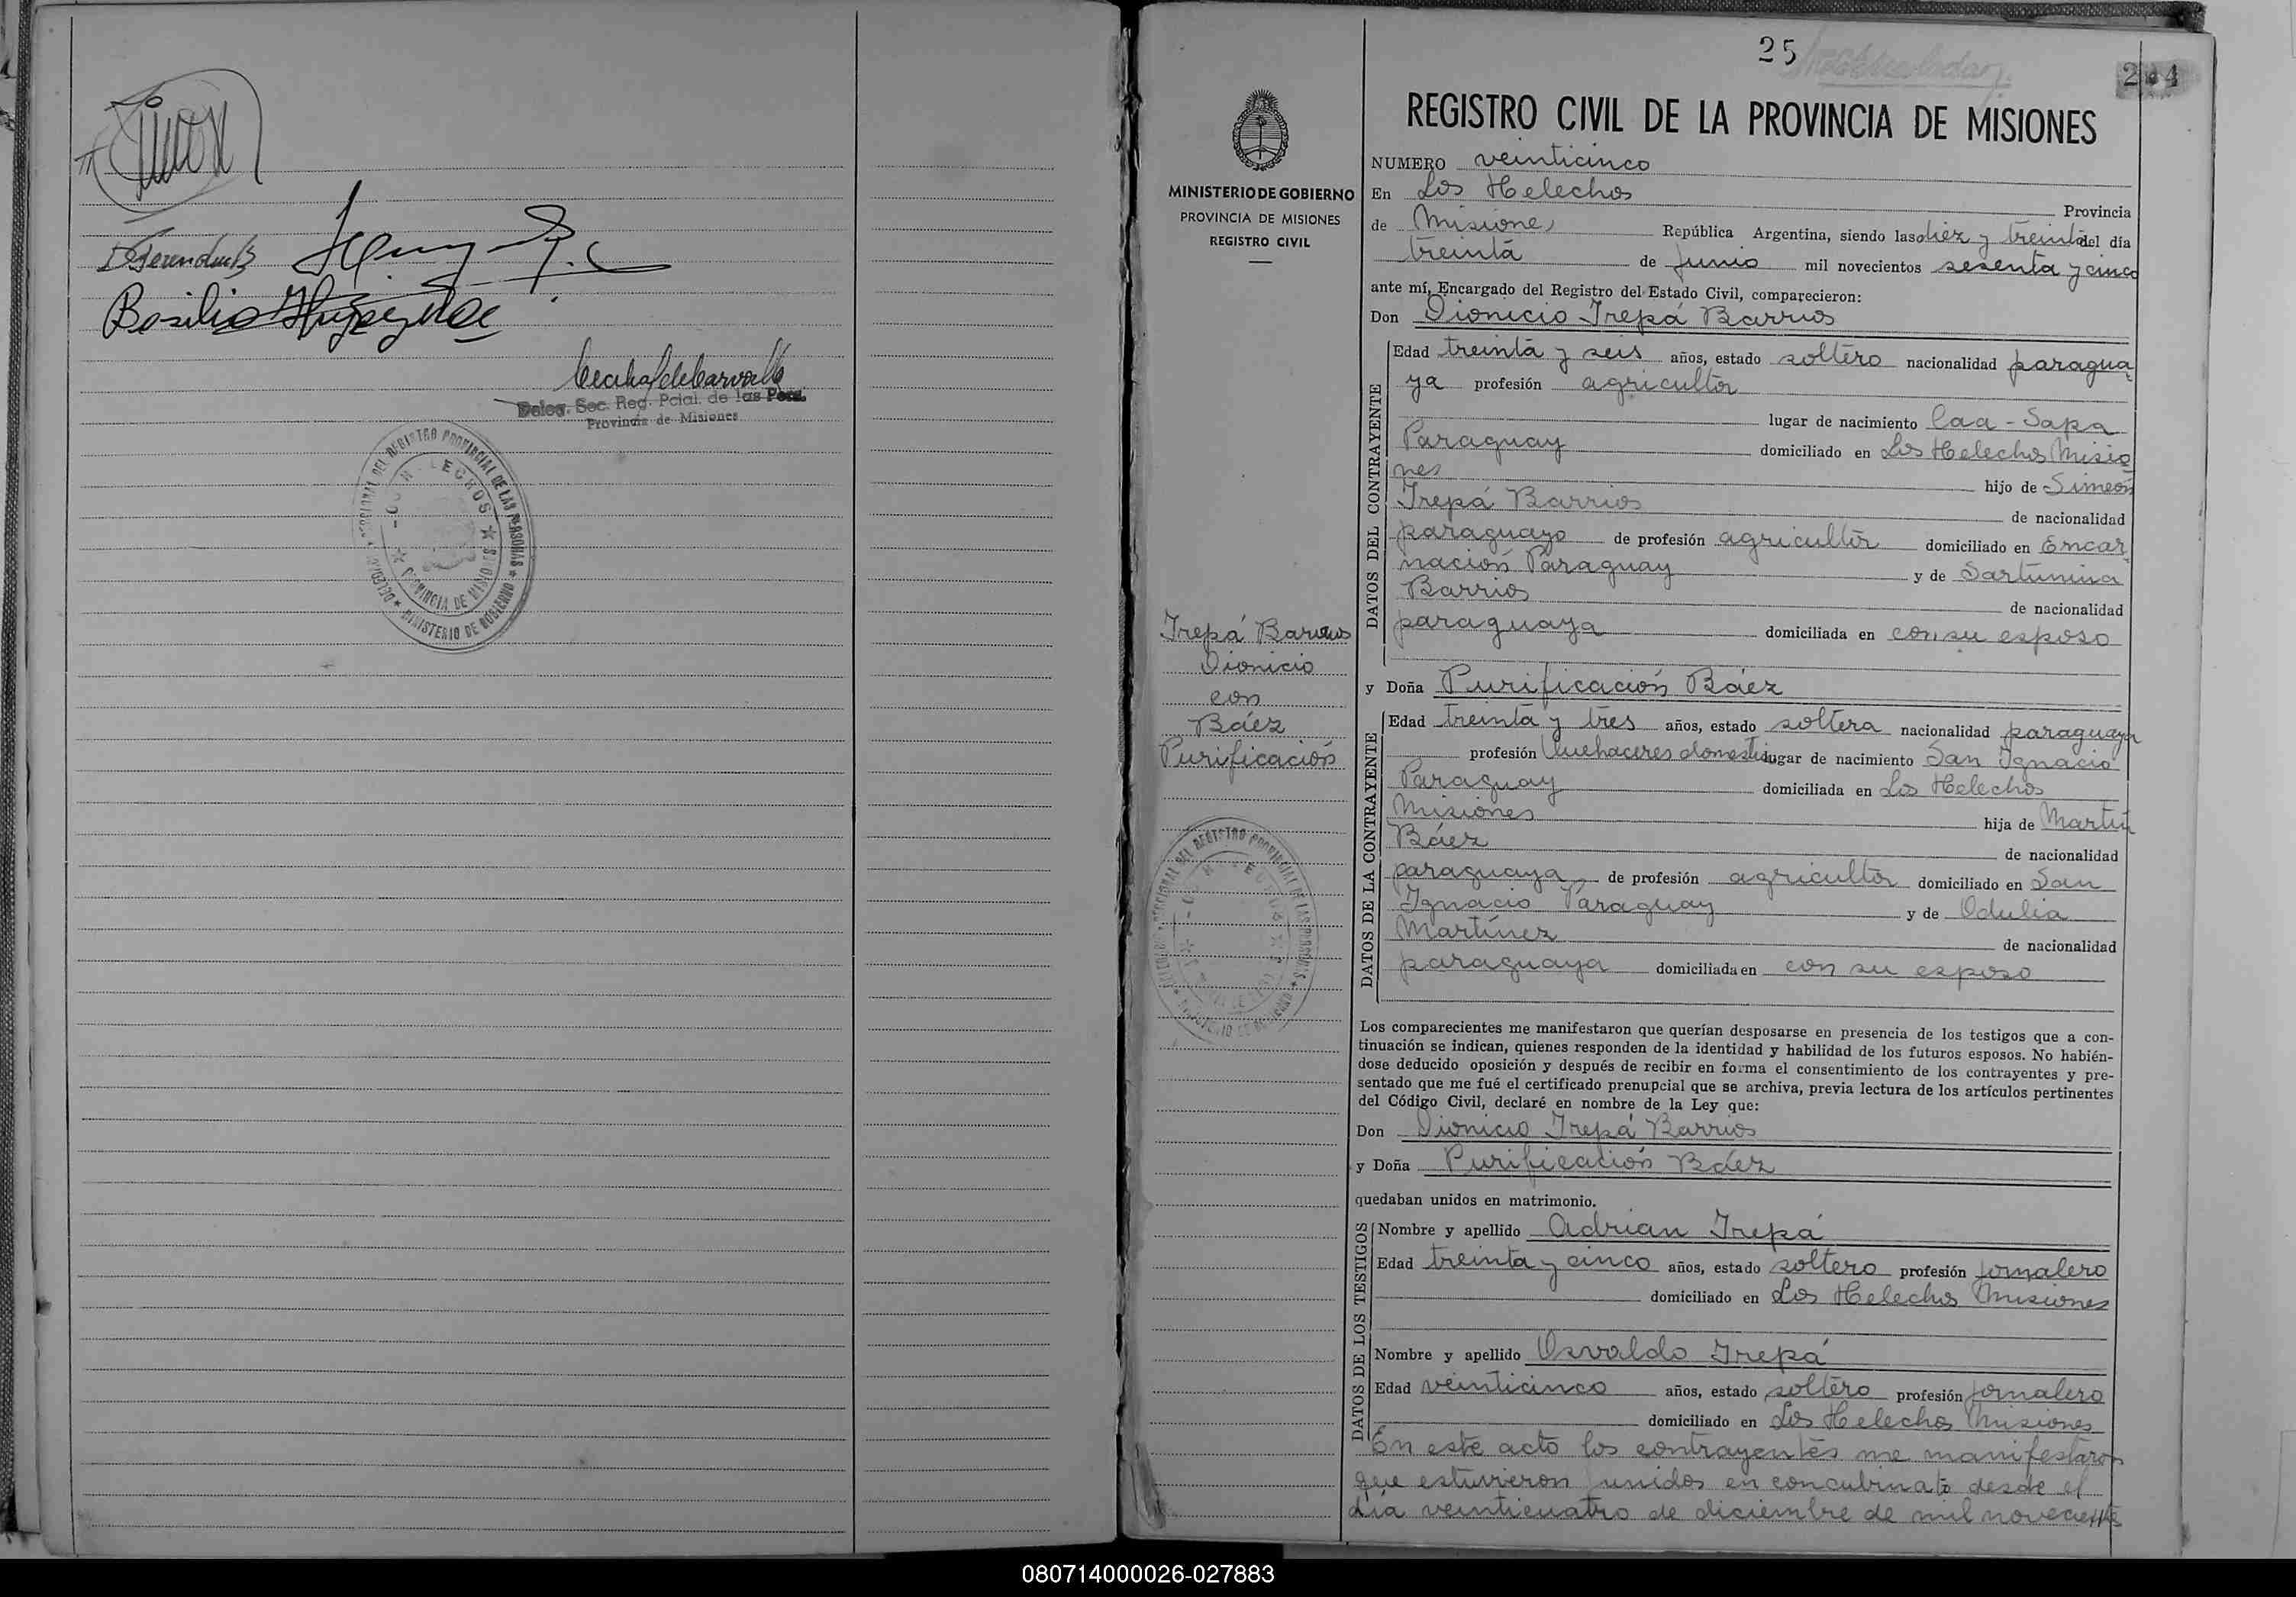 Basilio
Deleg. Sec. Reg. Pcial. de las Pers.
Provincia de Misiones
25
REGISTRO CIVIL DE LA PROVINCIA DE MISIONES
MINISTERIO DE GOBIERNO
PROVINCIA DE MISIONES
REGISTRO CIVIL
Trepá Barrios
Dionicio
con
Báez
Purificación
NUMERO veinticinco
En Los Helechos Provincia
de Misiones República Argentina, siendo las diez y treinta del día
treinta de junio mil novecientos sesenta y cinco
ante mí, Encargado del Registro del Estado Civil, comparecieron:
Don Dionicio Trepá Barrios
DATOS DEL CONTRAYENTE
Edad treinta y seis años, estado soltero nacionalidad paragua
ya profesión agricultor
lugar de nacimiento Caa-Sapa
Paraguay domiciliado en Los Helechos Misio
nes hijo de Simeón
Trepá Barrios de nacionalidad
paraguayo de profesión agricultor domiciliado en Encar
nación Paraguay y de Sarturnina
Barrios de nacionalidad
paraguaya domiciliada en con su esposo
y Doña Purificación Báez
DATOS DE LA CONTRAYENTE
Edad treinta y tres años, estado soltera nacionalidad paraguaya
profesión Quehaceres domesti lugar de nacimiento San Ignacio
Paraguay domiciliada en Los Helechos
Misiones hija de Martín
Báez de nacionalidad
paraguaya de profesión agricultor domiciliado en San
Ignacio Paraguay y de Odulia
Martínez de nacionalidad
paraguaya domiciliada en con su esposo
Los comparecientes me manifestaron que querían desposarse en presencia de los testigos que a con-
tinuación se indican, quienes responden de la identidad y habilidad de los futuros esposos. No habién-
dose deducido oposición y después de recibir en forma el consentimiento de los contrayentes y pre-
sentado que me fué el certificado prenupcial que se archiva, previa lectura de los artículos pertinentes
del Código Civil, declaré en nombre de la Ley que:
Don Dionicio Trepá Barrios
y Doña Purificación Báez
quedaban unidos en matrimonio.
DATOS DE LOS TESTIGOS
Nombre y apellido Adrian Trepá
Edad treinta y cinco años, estado soltero profesión jornalero
domiciliado en Los Helechos Misiones
Nombre y apellido Osvaldo Trepá
Edad veinticinco años, estado soltero profesión jornalero
domiciliado en Los Helechos Misiones
En este acto los contrayentes me manifestaron
que estuvieron unidos en concubinato desde el
día veinticuatro de diciembre de mil novecientos
080714000026-027883